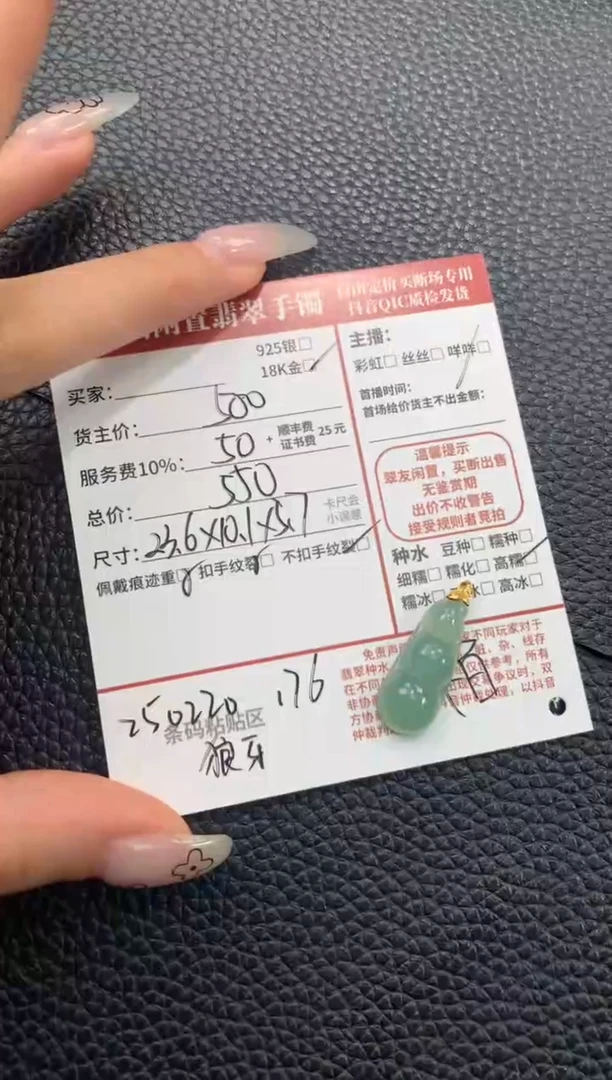 闲置翡翠手镯
自由定价 买断场专用
抖音QIC质检发货
925银□
18K金□
买家：
货主价： 500
服务费10%： 50 + 顺丰费 证书费 25元
总价： 550
尺寸： 23.6X10.1X5.7 卡尺会 小误差
佩戴痕迹重□ 扣手纹裂□ 不扣手纹裂□
主播：
彩虹□ 丝丝□ 咩咩□
首播时间：
首场给价货主不出金额：
温馨提示
翠友闲置，买断出售
无鉴赏期
出价不收警告
接受规则者竞拍
种水 豆种□ 糯种□
细糯□ 糯化□ 高糯□
糯冰□ 冰□ 高冰□
250220 176
条码粘贴区
狼牙
免责声明
不同玩家对于
翡翠种水
脏、杂、线存
在不同
仅供参考，所有
非协商
出现交易争议时，双
方协商
仲裁处理，以抖音
仲裁判